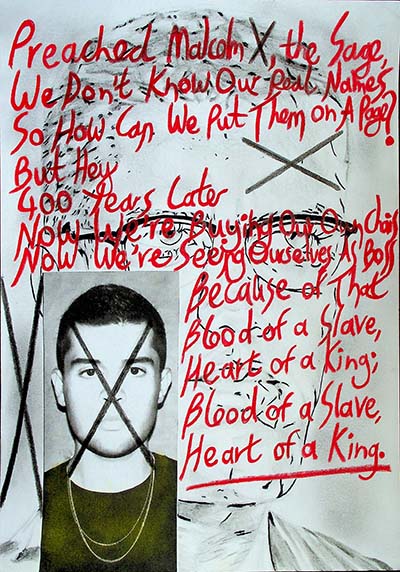 Preached Malcolm X, the Sage,
We Don't Know Our Real Names,
So How Can We Put Them on A Page?
But Hey
400 Years Later
Now We're Buying Our Own Chais
Now We're Seeing Ourselves As Boss
Because of That
Blood of a Slave,
Heart of a King;
Blood of a Slave,
Heart of a King.